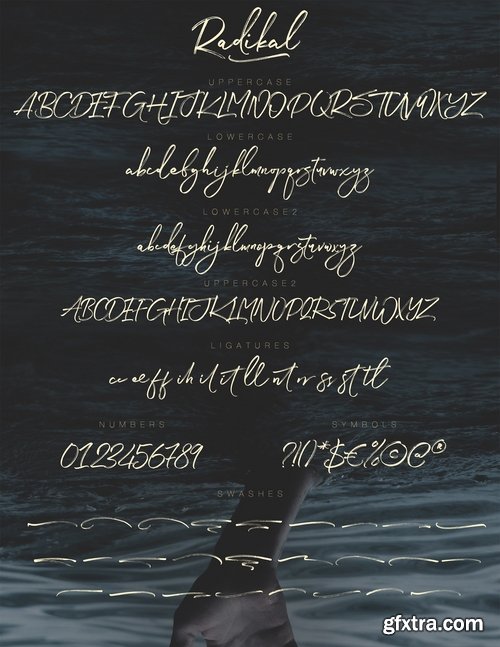 Radikal
UPPERCASE
ABCDEFGHIJKLMNOPQRSTUVWXYZ
LOWERCASE
abcdefghijklmnopqrstuvwxyz
LOWERCASE2
abcdefghijklmnopqrstuvwxyz
UPPERCASE2
ABCDEFGHIJKLMNOPQRSTUVWXYZ
LIGATURES
NUMBERS
SYMBOLS
0123456789
SWASHES
gfxtra.com